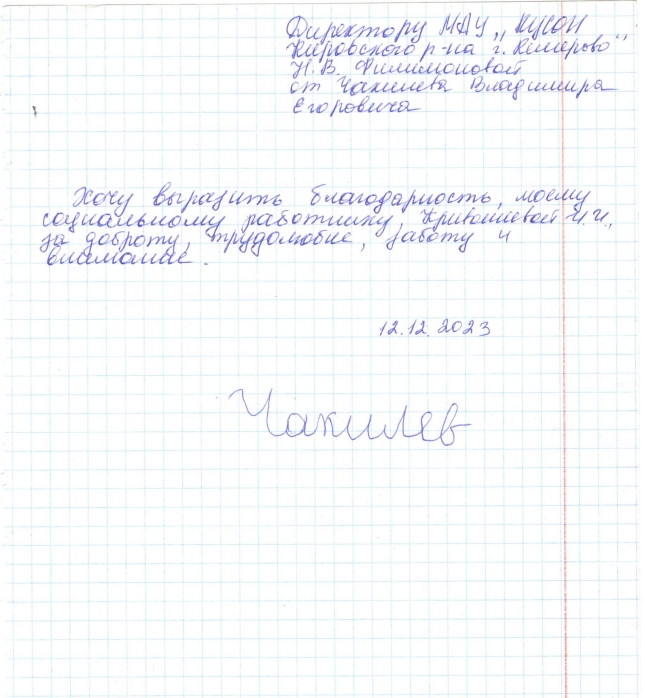 Директору МАУ „КЦСОН
Кировского р-на г. Кемерово"
Н.В. Филимоновой
от Чакилева Владимира
Егоровича
Хочу выразить благодарность, моему
социальному работнику, Кривошеевой И.И.,
за доброту, трудолюбие, заботу и
внимание.
12.12.2023
Чакилев